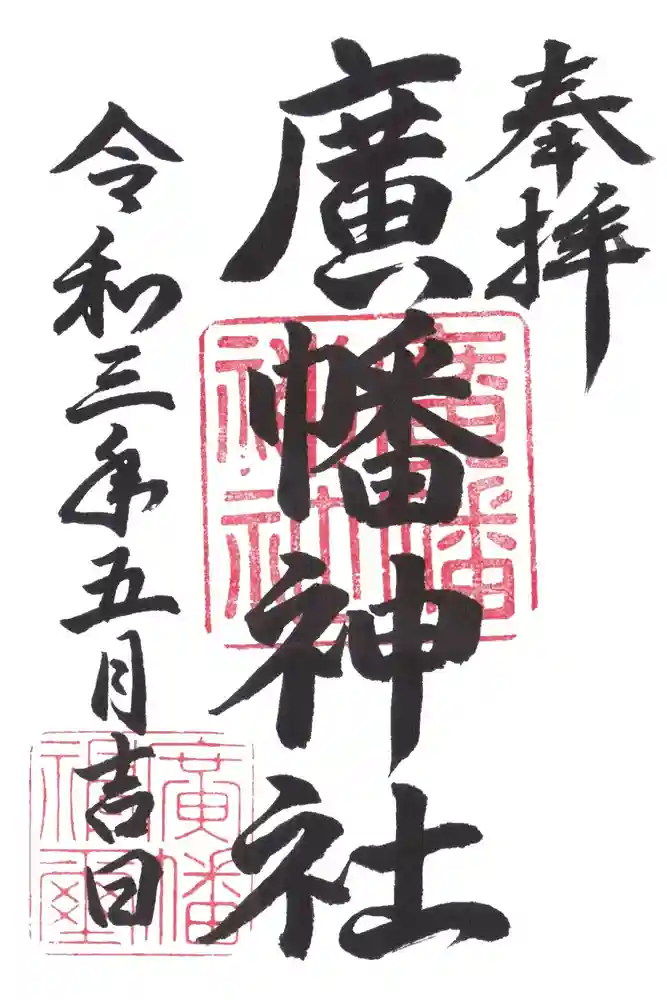 奉拝
廣幡神社
令和三年五月吉日
廣幡
神社
廣幡
神璽